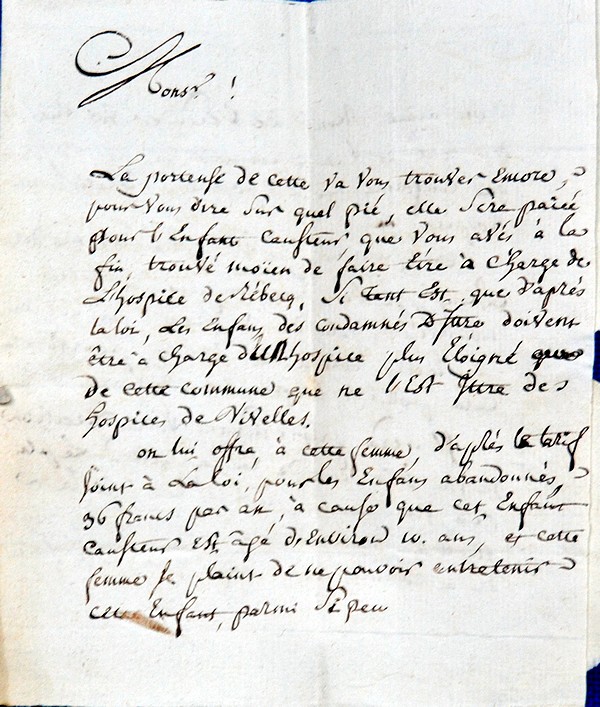 Monsr !
La porteuse de cette va vous trouver Encore,
pour vous dire sur quel pié, elle sera païée
pour l'Enfant Causteur, que vous avés à la
fin, trouvé moïen de faire être à charge de
L'hospice de Rébecq, si tant Est, que d'après
la loi, Les Enfans des condamnés D'Ittre doivent
être à charge d'un hospice plus Éloigné
de cette commune que ne l'Est Ittre des
hospices de Nivelles.
on lui offre, à cette femme, d'après le tarif
joint à La loi, pour les Enfans abandonnés,
36 francs par an, à cause que cet Enfant
Causteur Est âgé d'Environ 10. ans, et cette
femme se plaint de ne pouvoir entretenir
cet Enfant, parmi si peu